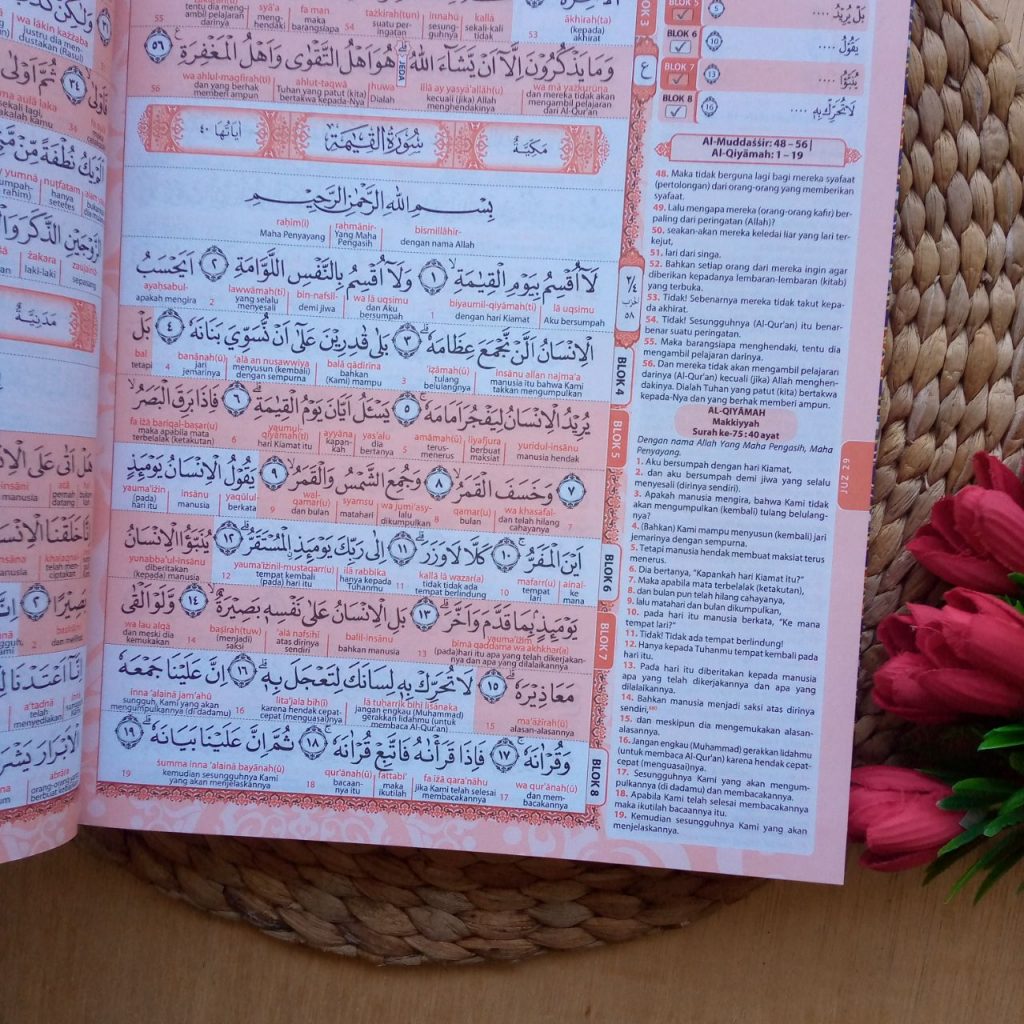 وَمَا يَذْكُرُوْنَ اِلَّآ اَنْ يَّشَاۤءَ اللّٰهُ ۗهُوَ اَهْلُ التَّقْوٰى وَاَهْلُ الْمَغْفِرَةِ ࣖ ٥٦
wa mā yażkurūna
illā ay yasyā'allāh(u)
huwa
ahlut-taqwā
wa ahlul-magfirah(ti)
dan mereka tidak akan mengambil pelajaran dari Al-Qur'an
kecuali (jika) Allah menghendakinya
Dialah
Tuhan yang patut (kita) bertakwa kepada-Nya
dan yang berhak memberi ampun
56
مَكِّيَّةٌ
سُوْرَةُ الْقِيٰمَةِ
اٰيَاتُهَا ٤٠
بِسْمِ اللّٰهِ الرَّحْمٰنِ الرَّحِيْمِ
bismillāhir-
raḥmānir-
raḥīm(i)
dengan nama Allah
Yang Maha Pengasih
Maha Penyayang
لَآ اُقْسِمُ بِيَوْمِ الْقِيٰمَةِۙ ١ وَلَآ اُقْسِمُ بِالنَّفْسِ اللَّوَّامَةِ ٢ اَيَحْسَبُ
lā uqsimu
biyaumil-qiyāmah(ti)
wa lā uqsimu
bin-nafsil-
lawwāmah(ti)
ayaḥsabul-
Aku bersumpah
dengan hari Kiamat
1
dan Aku bersumpah
demi jiwa
yang selalu menyesali
2
apakah mengira
الْاِنْسَانُ اَلَّنْ نَّجْمَعَ عِظَامَهٗ ۗ ٣ بَلٰى قٰدِرِيْنَ عَلٰٓى اَنْ نُّسَوِّيَ بَنَانَهٗ ٤ بَلْ
insānu allan najma'a
'iẓāmah(ū)
balā qādirīna
'alā an nusawwiya
banānah(ū)
bal
manusia itu bahwa Kami takkan mengumpulkan
tulang belulangnya
3
bahkan (Kami) mampu
menyusun (kembali) dengan sempurna
jari jemarinya
4
tetapi
BLOK 4
يُرِيْدُ الْاِنْسَانُ لِيَفْجُرَ اَمَامَهٗۚ ٥ يَسْـَٔلُ اَيَّانَ يَوْمُ الْقِيٰمَةِۗ ٦ فَاِذَا بَرِقَ الْبَصَرُۙ
yurīdul-insānu
liyafjura
amāmah(ū)
yas'alu
ayyāna
yaumul-qiyāmah(ti)
fa iżā bariqal-baṣar(u)
manusia hendak
berbuat maksiat
terus-menerus
5
dia bertanya
kapankah
hari Kiamat itu
6
maka apabila mata terbelalak (ketakutan)
BLOK 5
٧ وَخَسَفَ الْقَمَرُۙ ٨ وَجُمِعَ الشَّمْسُ وَالْقَمَرُۙ ٩ يَقُوْلُ الْاِنْسَانُ يَوْمَىِٕذٍ
wa khasafal-
qamar(u)
wa jumi'asy-
syamsu
wal-qamar(u)
yaqūlul-
insānu
yauma'iżin
7
dan telah hilang cahayanya
bulan
8
lalu dikumpulkan
matahari
dan bulan
9
berkata
manusia
(pada) hari itu
اَيْنَ الْمَفَرُّۚ ١٠ كَلَّا لَا وَزَرَۗ ١١ اِلٰى رَبِّكَ يَوْمَىِٕذِ ِۨالْمُسْتَقَرُّۗ ١٢ يُنَبَّؤُا الْاِنْسَانُ
ainal-
mafarr(u)
kallā lā wazar(a)
ilā rabbika
yauma'iżinil-mustaqarr(u)
yunabba'ul-insānu
ke mana
tempat lari
10
tidak tidak ada tempat berlindung
11
hanya kepada Tuhanmu
tempat kembali (pada) hari itu
12
diberitakan (kepada) manusia
BLOK 6
يَوْمَىِٕذٍۢ بِمَا قَدَّمَ وَاَخَّرَۗ ١٣ بَلِ الْاِنْسَانُ عَلٰى نَفْسِهٖ بَصِيْرَةٌۙ ١٤ وَّلَوْ اَلْقٰى
yauma'iżim bimā qaddama wa akhkhar(a)
balil-insānu
'alā nafsihī
baṣīrah(tuw)
wa lau alqā
(pada)hari itu apa yang telah dikerjakannya dan apa yang dilalaikannya
13
bahkan manusia
atas dirinya sendiri
(menjadi) saksi
14
dan meski dia kemukakan
BLOK 7
مَعَاذِيْرَهٗۗ ١٥ لَا تُحَرِّكْ بِهٖ لِسَانَكَ لِتَعْجَلَ بِهٖۗ ١٦ اِنَّ عَلَيْنَا جَمْعَهٗ
ma'āżīrah(ū)
lā tuḥarrik bihī lisānaka
lita'jala bih(ī)
inna 'alainā jam'ahū
alasan-alasannya
15
jangan engkau (Muhammad) gerakkan lidahmu (untuk membaca Al-Qur'an)
karena hendak cepat-cepat (menguasai)nya
16
sungguh, Kami yang akan mengumpulkannya (di dadamu)
وَقُرْاٰنَهٗۚ ١٧ فَاِذَا قَرَأْنٰهُ فَاتَّبِعْ قُرْاٰنَهٗۚ ١٨ ثُمَّ اِنَّ عَلَيْنَا بَيَانَهٗۗ ١٩
wa qur'ānah(ū)
fa iżā qara'nāhu
fattabi'
qur'ānah(ū)
summa inna 'alainā bayānah(ū)
dan membacakannya
17
jika Kami telah selesai membacakannya
maka ikutilah
bacaannya itu
18
kemudian sesungguhnya Kami yang akan menjelaskannya
19
BLOK 8
BLOK 3
BLOK 5
5
بَلْ يُرِيْدُ ....
BLOK 6
10
يَقُوْلُ ....
BLOK 7
13
يُنَبَّؤُا ....
BLOK 8
16
لَا تُحَرِّكْ بِهٖ ....
Al-Muddaṡṡir: 48 – 56 |
Al-Qiyāmah: 1 – 19
48. Maka tidak berguna lagi bagi mereka syafaat
(pertolongan) dari orang-orang yang memberikan
syafaat.
49. Lalu mengapa mereka (orang-orang kafir) ber-
paling dari peringatan (Allah)?
50. seakan-akan mereka keledai liar yang lari ter-
kejut,
51. lari dari singa.
52. Bahkan setiap orang dari mereka ingin agar
diberikan kepadanya lembaran-lembaran (kitab)
yang terbuka.
53. Tidak! Sebenarnya mereka tidak takut kepa-
da akhirat.
54. Tidak! Sesungguhnya (Al-Qur'an) itu benar-
benar suatu peringatan.
55. Maka barangsiapa menghendaki, tentu dia
mengambil pelajaran darinya.
56. Dan mereka tidak akan mengambil pelajaran
darinya (Al-Qur'an) kecuali (jika) Allah menghen-
dakinya. Dialah Tuhan yang patut (kita) bertakwa
kepada-Nya dan yang berhak memberi ampun.
AL-QIYĀMAH
Makkiyyah
Surah ke-75 : 40 ayat
Dengan nama Allah Yang Maha Pengasih, Maha
Penyayang.
1. Aku bersumpah dengan hari Kiamat,
2. dan aku bersumpah demi jiwa yang selalu
menyesali (dirinya sendiri).
3. Apakah manusia mengira, bahwa Kami tidak
akan mengumpulkan (kembali) tulang belulang-
nya?
4. (Bahkan) Kami mampu menyusun (kembali) jari
jemarinya dengan sempurna.
5. Tetapi manusia hendak membuat maksiat terus
menerus.
6. Dia bertanya, "Kapankah hari Kiamat itu?"
7. Maka apabila mata terbelalak (ketakutan),
8. dan bulan pun telah hilang cahayanya,
9. lalu matahari dan bulan dikumpulkan,
10. pada hari itu manusia berkata, "Ke mana
tempat lari?"
11. Tidak! Tidak ada tempat berlindung!
12. Hanya kepada Tuhanmu tempat kembali pada
hari itu.
13. Pada hari itu diberitakan kepada manusia
apa yang telah dikerjakannya dan apa yang
dilalaikannya.
14. Bahkan manusia menjadi saksi atas dirinya
sendiri,
15. dan meskipun dia mengemukakan alasan-
alasannya.
16. Jangan engkau (Muhammad) gerakkan lidahmu
(untuk membaca Al-Qur'an) karena hendak cepat-
cepat (menguasai)nya.
17. Sesungguhnya Kami yang akan mengum-
pulkannya (di dadamu) dan membacakannya.
18. Apabila Kami telah selesai membacakannya
maka ikutilah bacaannya itu.
19. Kemudian sesungguhnya Kami yang akan
menjelaskannya.
JUZ 29